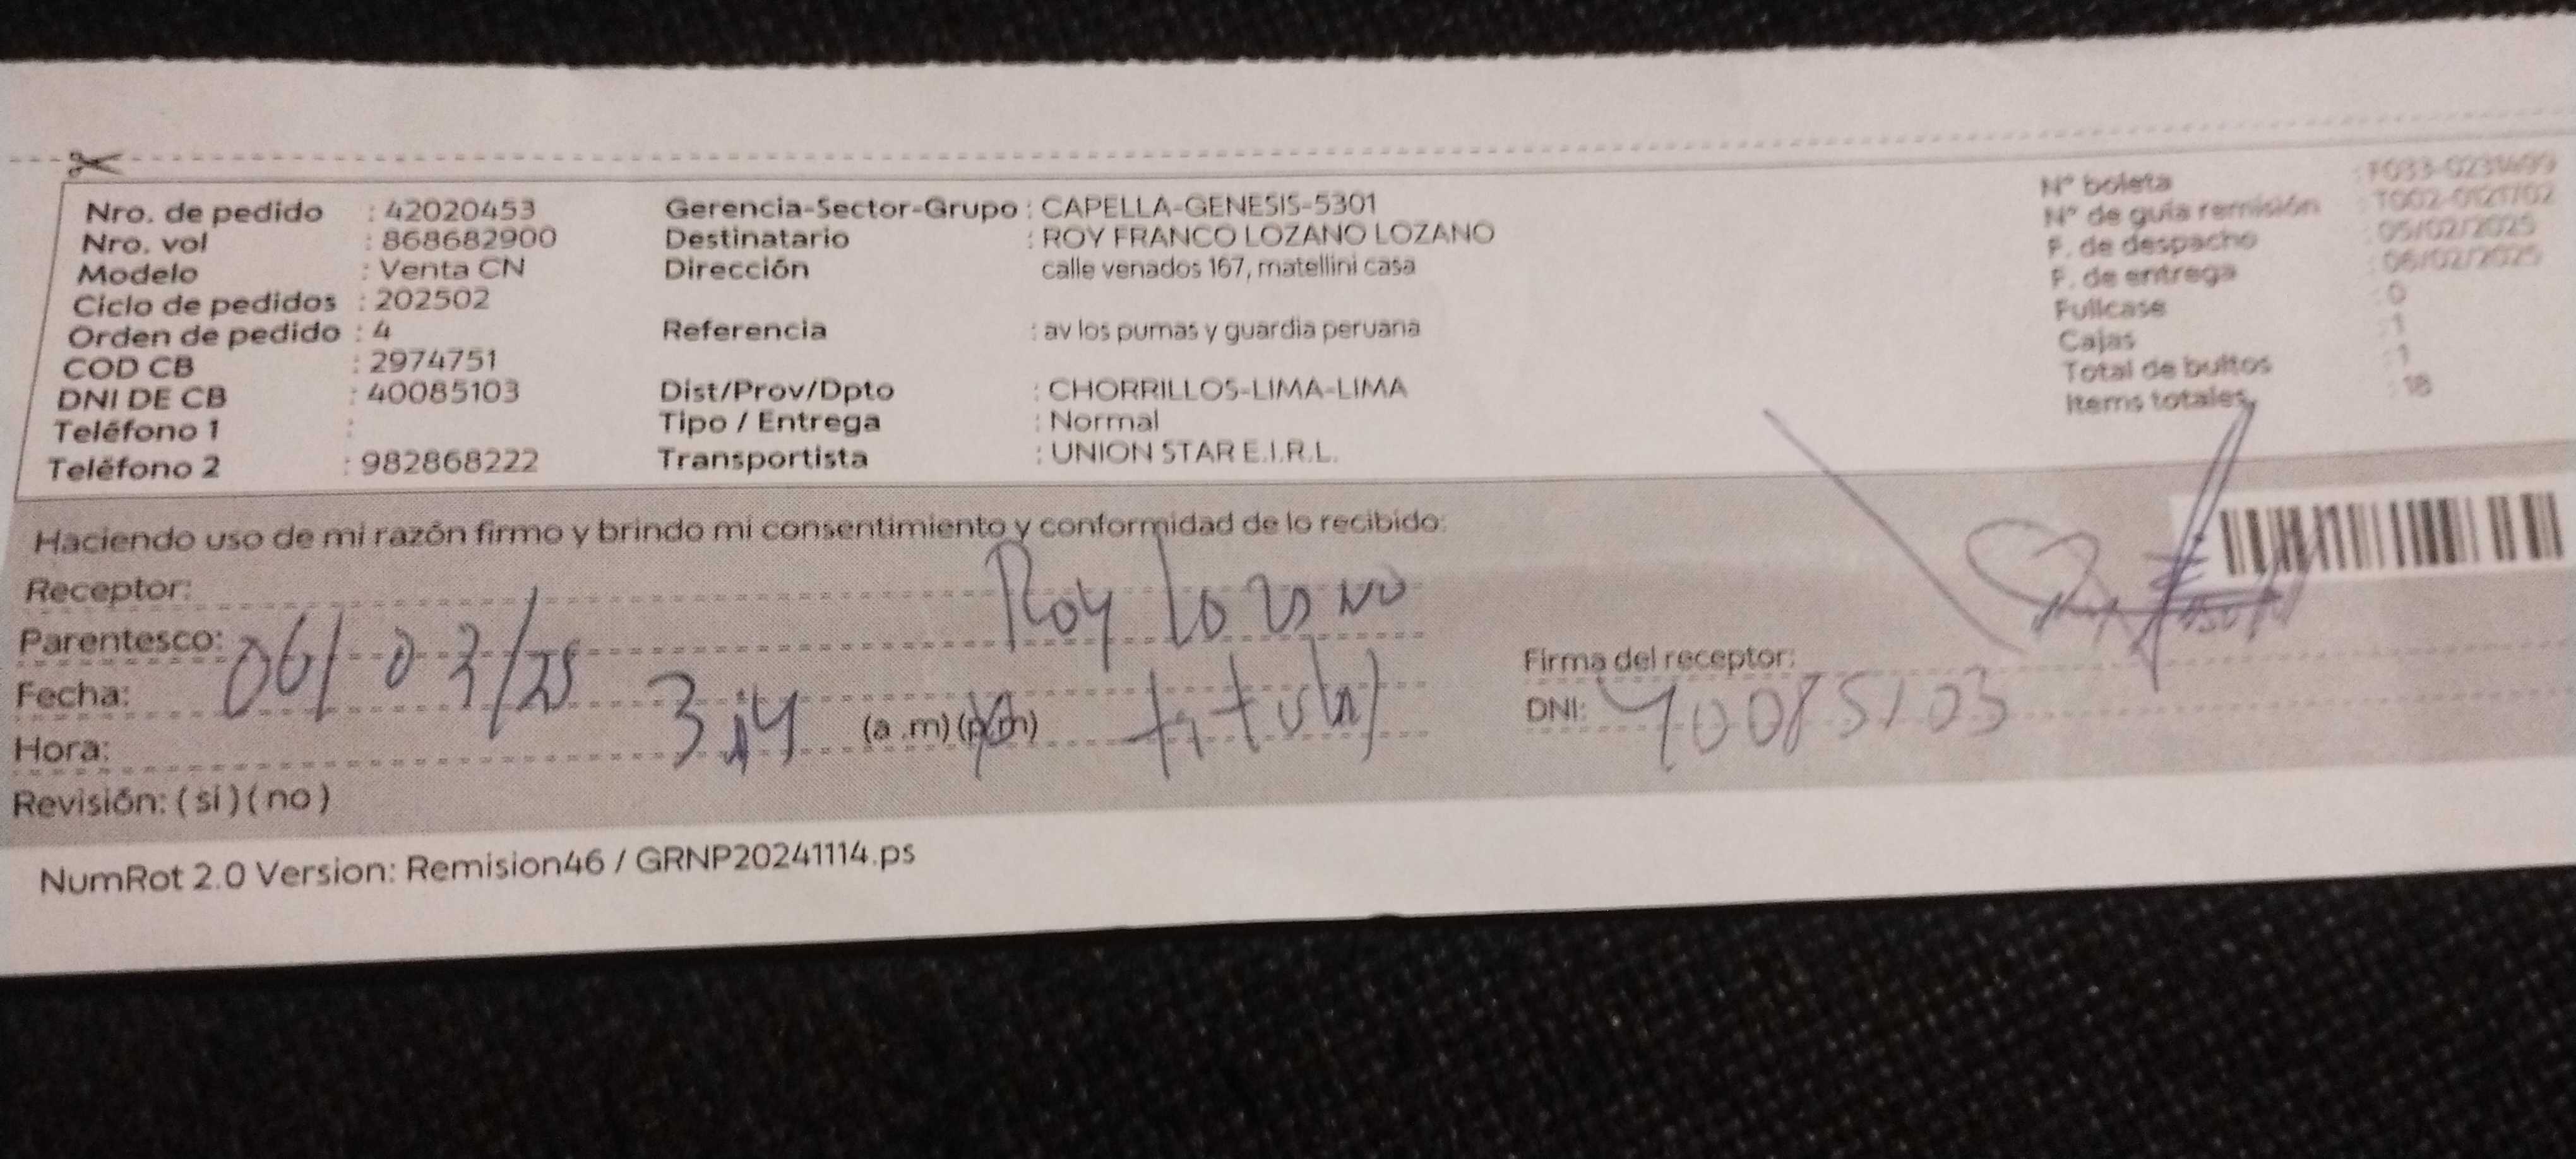 Nro. de pedido : 42020453
Nro. vol : 868682900
Modelo : Venta CN
Ciclo de pedidos : 202502
Orden de pedido : 4
COD CB : 2974751
DNI DE CB : 40085103
Teléfono 1 :
Teléfono 2 : 982868222
Gerencia-Sector-Grupo : CAPELLA-GENESIS-5301
Destinatario : ROY FRANCO LOZANO LOZANO
Dirección calle venados 167, matellini casa
Referencia : av los pumas y guardia peruana
Dist/Prov/Dpto : CHORRILLOS-LIMA-LIMA
Tipo / Entrega : Normal
Transportista : UNION STAR E.I.R.L.
N° boleta
N° de guía remisión
F. de despacho : 05/02/2025
F. de entrega : 06/02/2025
Fullcase : 0
Cajas : 1
Total de bultos : 1
Items totales : 18
Haciendo uso de mi razón firmo y brindo mi consentimiento y conformidad de lo recibido:
Receptor: Roy Lozano
Parentesco: titular
Fecha: 06/02/25
Hora: (a.m) (p.m)
Revisión: (si) (no)
Firma del receptor:
DNI: 40085103
NumRot 2.0 Version: Remision46 / GRNP20241114.ps